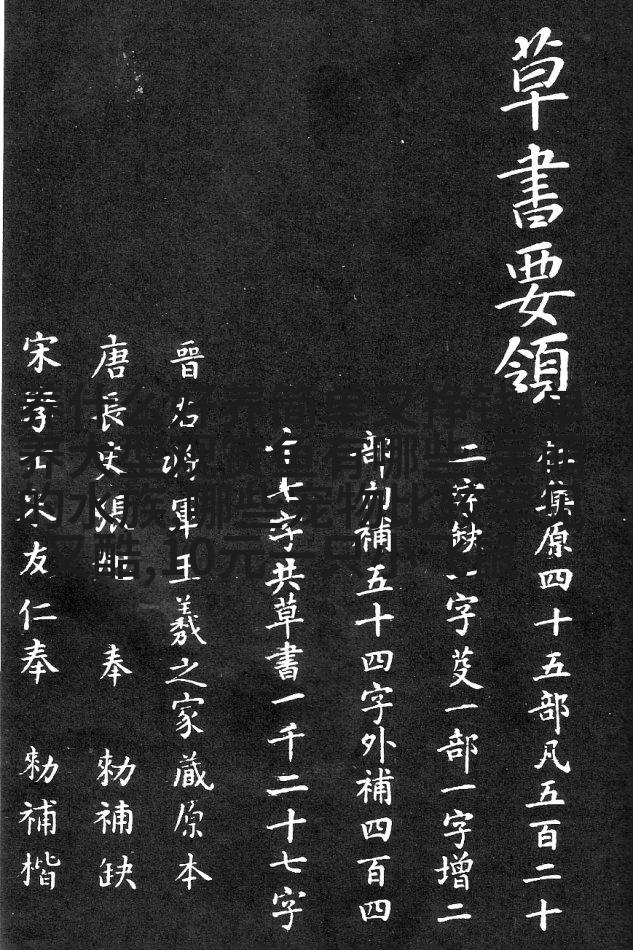 草書要領
集原四十五部凡五百二十
二字缺一字芟一部一字增二
部內補五十四字外補四百四
七字共草書一千二十七字
晉右將軍王羲之家藏原本
唐長史張旭 奉 勑補缺
宋 友仁奉 勑補楷
養什么 养簡單又掙錢
养大型 魚有哪些
的水族,哪些宠物比
又酷,10元一只小